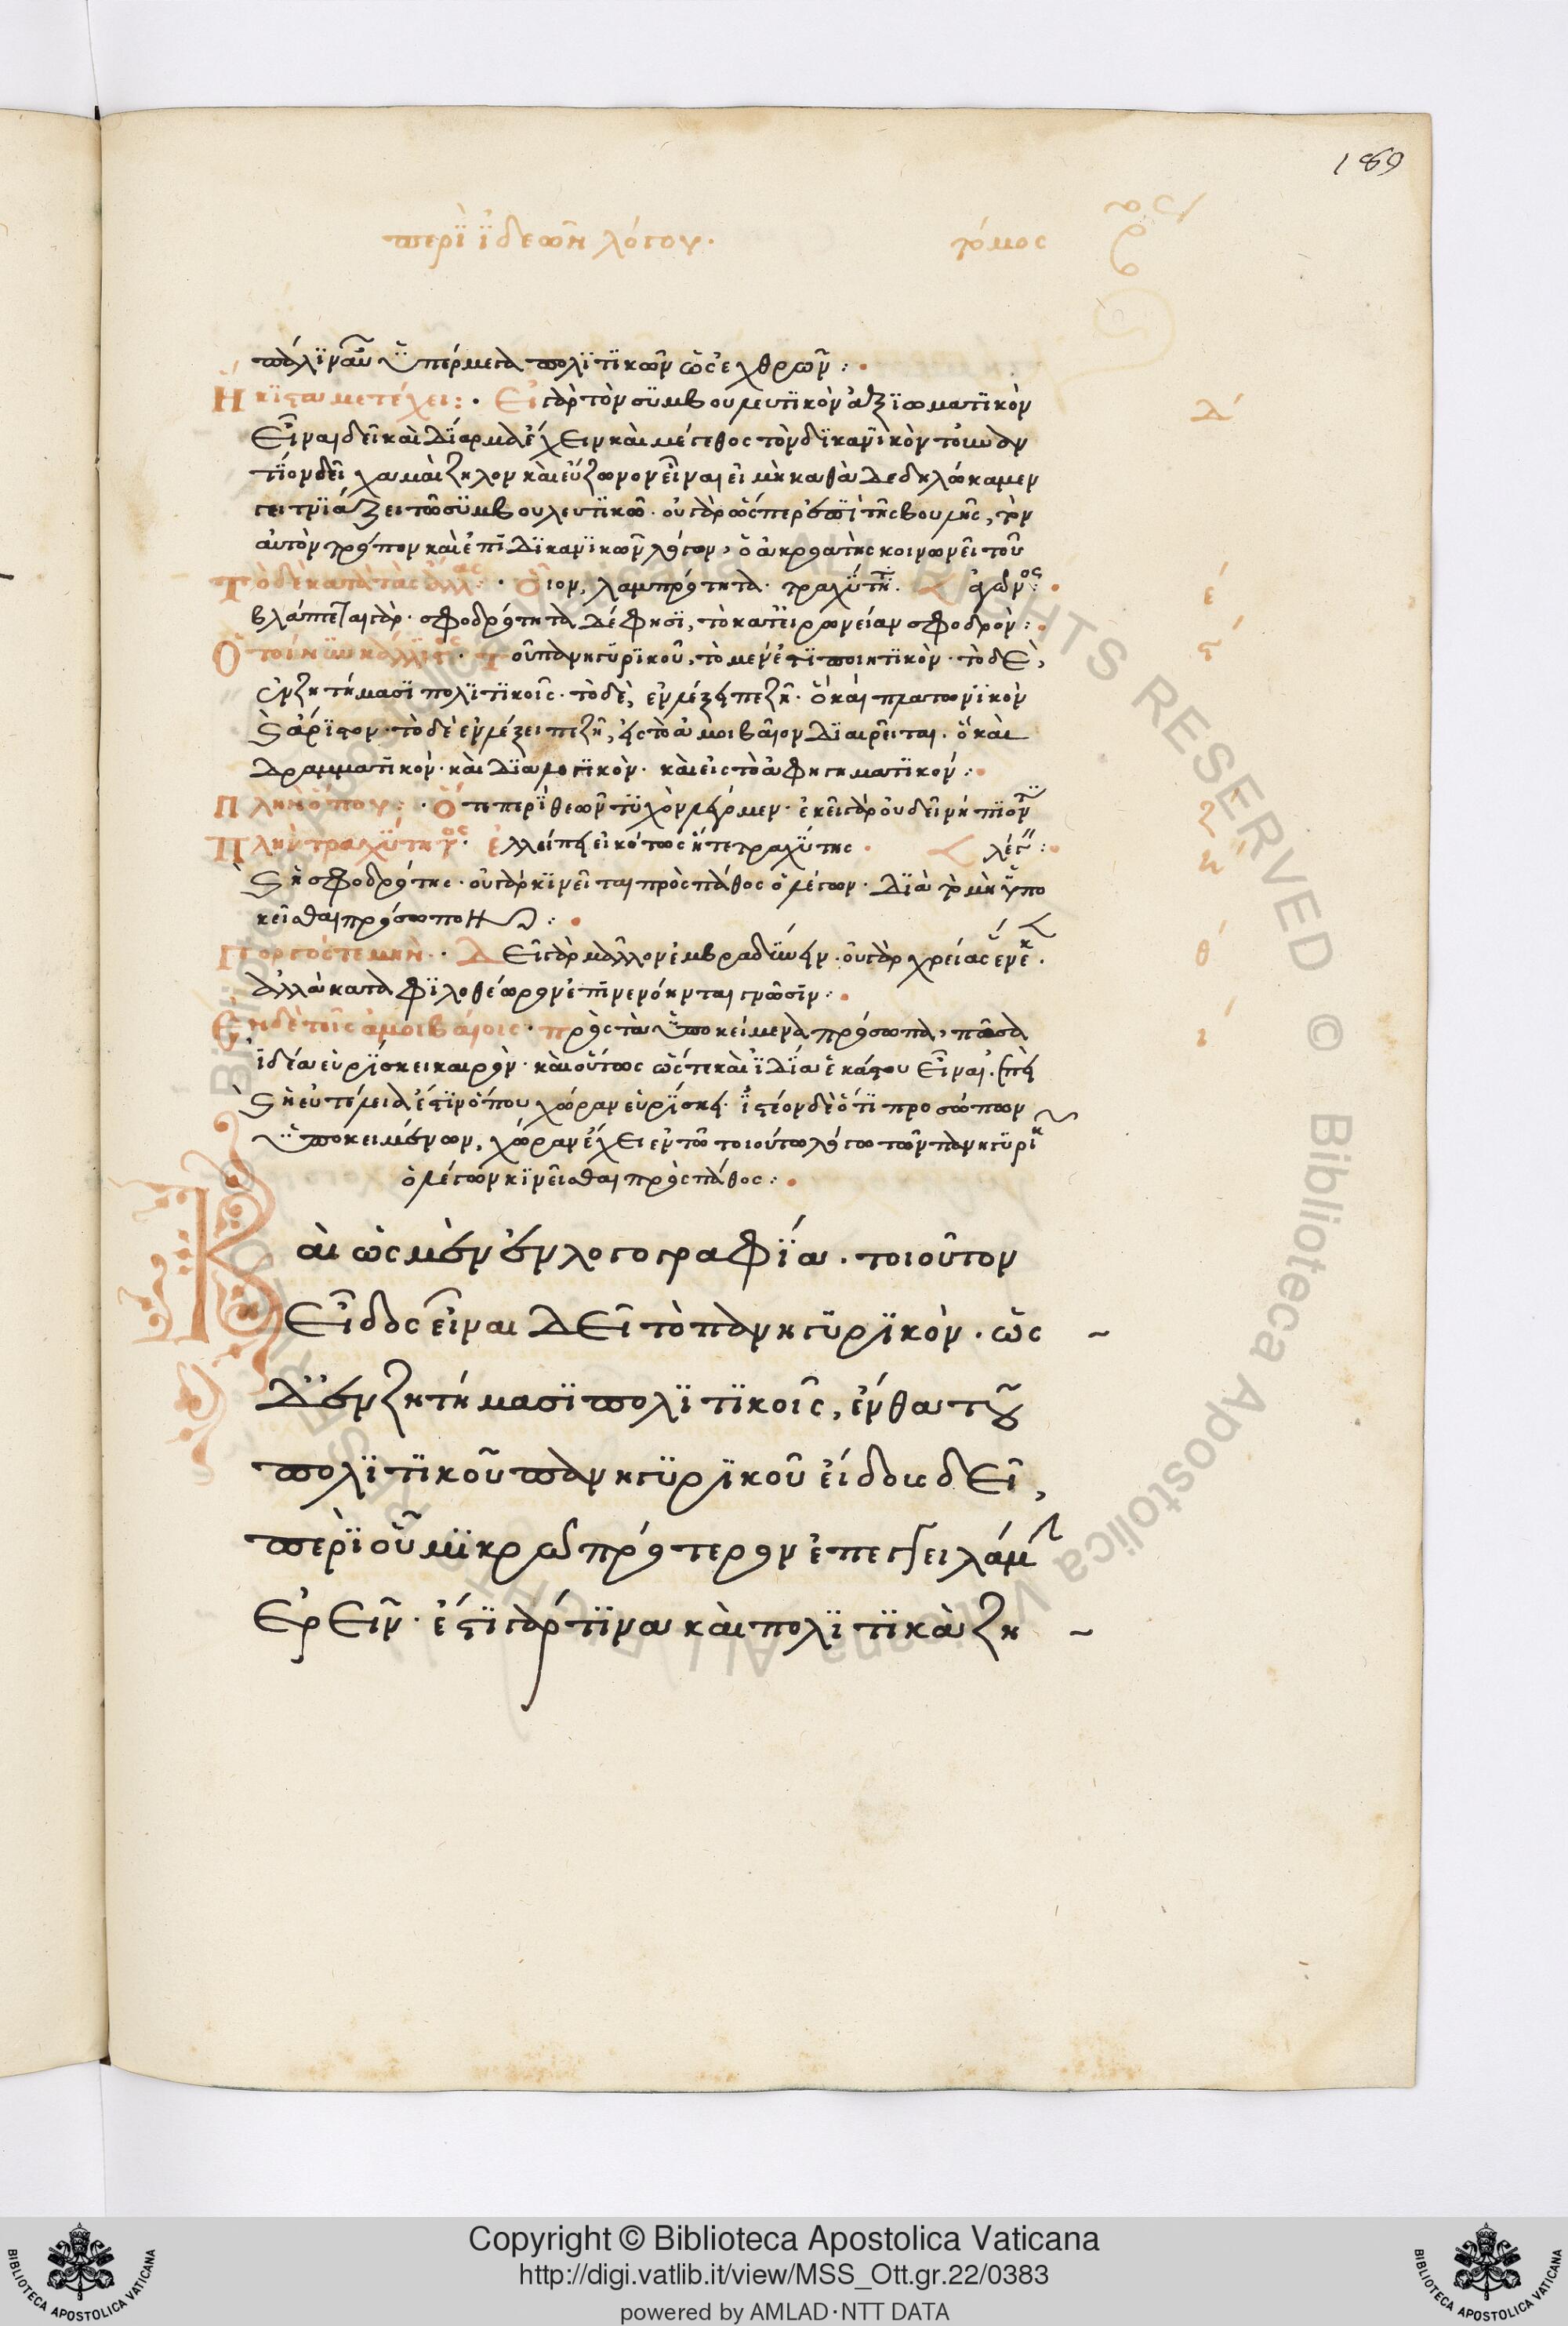 189
περὶ ἰδεῶν λόγου.
τόμος
πάλιν ἂν ὑπὲρ μετὰ πολιτικῶν ὡς ἐχθρῶν:
Ἥκιστα μετέχει: Εἰ γὰρ τὸν συμβουλευτικὸν ἀξιωματικὸν
δ´
εἶναι δεῖ καὶ δίαρμα ἔχειν καὶ μέγεθος τὸν δικανικὸν τοὐναν
τίον δεῖ χαμαίζηλον καὶ εὔζωνον εἶναι εἰ μὴ καθὰ δεδηλώκαμεν
γειτνιάζει τῶ συμβουλευτικῶ. οὐ γὰρ ὥσπερ ἐπὶ τῆς βουλῆς, τὸν
αὐτὸν τρόπον καὶ ἐπὶ δικανικῶν λόγων, ὁ ἀκροατὴς κοινωνεῖ τοῦ
Τὸ δὲ κατὰ τὰς ἄλλ: Οἷον, λαμπρότητα. τραχύτη. ἀγῶνος:
ε´
βλάπτεται γάρ. σφοδρότητα δέ φησι, τὸ κατ' εἰρωνείαν σφοδρόν:
Ὁ τοίνυν κάλλιστος. τοῦ πανηγυρικοῦ, τὸ μέν ἐστι ποιητικόν. τὸ δὲ,
ς´
ἐν ζητήμασι πολιτικοῖς. τὸ δὲ, ἐν λέξει πεζῆ. ὃ καὶ πλατωνικὸν
ἄριστον. τὸ δὲ ἐν λέξει πεζῆ, εἰς τὸ ἀμοιβαῖον διαιρεῖται. ὃ καὶ
δραμματικόν. καὶ διαλογικόν. καὶ εἰς τὸ ἀφηγηματικόν:
Πλὴν ὅπου: Ὅτε περὶ θεῶν τυχὸν λέγομεν. ἐκεῖ γὰρ οὐδεὶν
ζ´
Πλὴν τραχύτητος. ἐλλείπει εἰκότως ἥ τε τραχύτης
η´
ἡ σφοδρότης. οὐ γὰρ κινεῖται πρὸς πάθος ὁ λέγων. διὰ τὸ μὴ ὑπο
κεῖσθαι πρόσωπον:
Γοργός τε μὴν. Δεῖ γὰρ μᾶλλον ἐμβραδύνειν. οὐ γὰρ χρείας ἕνεκ.
θ´
ἀλλὰ κατὰ φιλοθέωρον ἐπινενόηνται γνῶσιν:
Ἐν δὲ τοῖς ἀμοιβαίοις. πρὸς τὰ ὑποκείμενα πρόσωπα, πᾶσα
ι´
ἰδέα εὑρίσκει καιρόν. καὶ οὕτως ὥς τε καὶ ἰδία ἑκάστου εἶναι.
ἡ εὐτέλεια ἐστὶν ὅπου χώραν εὑρίσκει. ἰστέον δὲ ὅτι προσώπων
ὑποκειμένων, χώραν ἔχει ἐν τῶ τοιούτω λόγω τῶν πανηγυρικ
ὁ λέγων κινεῖσθαι πρὸς πάθος:
Καὶ ὡς μὲν ἐν λογογραφία. τοιοῦτον
εἶδος εἶναι δεῖ τὸ πανηγυρικόν. ὡς
δ' ἐν ζητήμασι πολιτικοῖς, ἔνθα τοῦ
πολιτικοῦ πανηγυρικοῦ εἴδους δεῖ,
περὶ οὗ μικρῶ πρότερον ἐπεγγειλάμ
ἐρεῖν. ἔστι γάρ τινα καὶ πολιτικὰ ζη
Copyright © Biblioteca Apostolica Vaticana
http://digi.vatlib.it/view/MSS_Ott.gr.22/0383
powered by AMLAD·NTT DATA
BIBLIOTECA APOSTOLICA VATICANA
BIBLIOTECA APOSTOLICA VATICANA